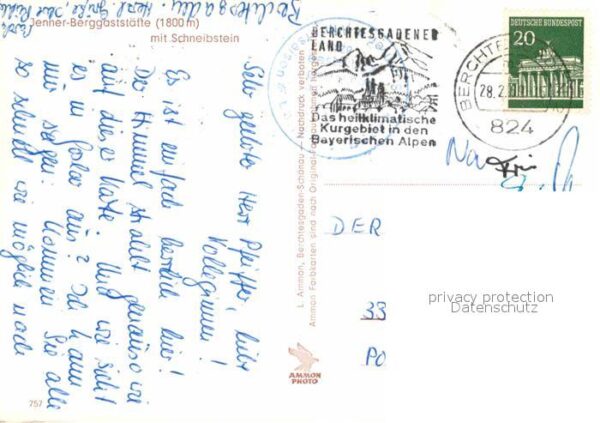 Jenner-Berggaststätte (1800 m)
mit Schneibstein
Sehr geehrter Herr Pfeiffer, liebe
Kolleginnen!
Es ist einfach herrlich hier!
Der Himmel strahlt genauso wie
auf dieser Karte. Und wie sieht
es in aus? Ich kann
nur sagen: Kommen Sie alle
so schnell wie möglich nach
Berchtesgaden. Herzl. Grüße, Ihre
L. Ammon, Berchtesgaden-Schönau — Nachdruck verboten
Ammon Farbkarten sind nach Original-
AMMON
PHOTO
757
BERCHTESGADENER
LAND
Das heilklimatische
Kurgebiet in den
Bayerischen Alpen
BERCHTE
28.2.
824
DEUTSCHE BUNDESPOST
20
DER
33
PO
privacy protection
Datenschutz